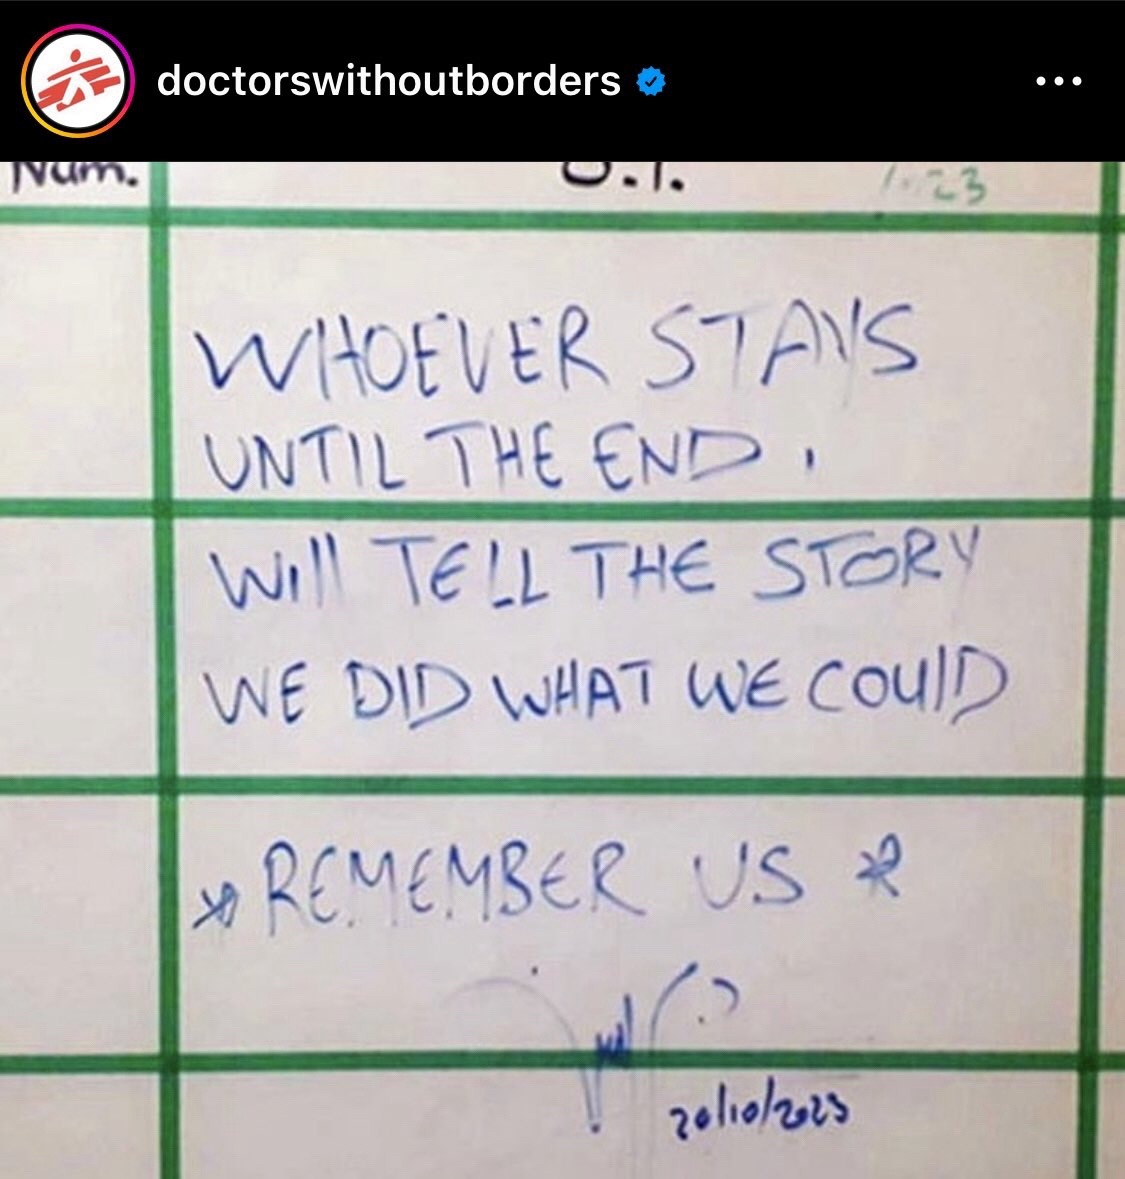 doctorswithoutborders
Num.
WHOEVER STAYS
UNTIL THE END.
Will TELL THE STORY
WE DID WHAT WE COUlD
* REMEMBER US *
20/10/2023